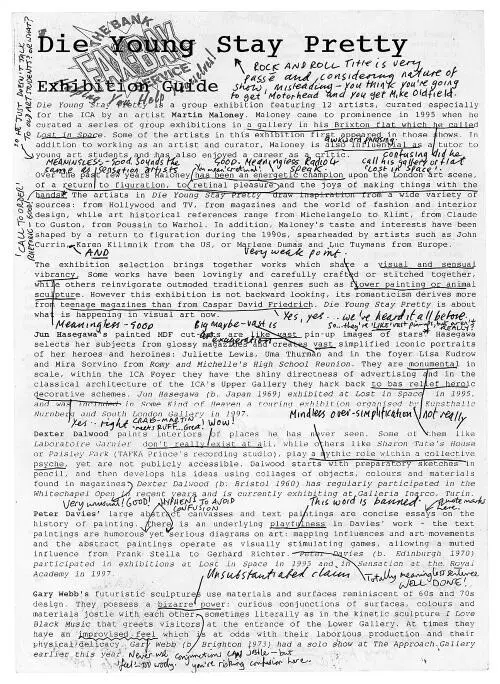 THE BANK
SERVICE
Die Young Stay Pretty
ROCK AND ROLL Title is very
passé and, considering nature of
show, misleading – you think you're going
to get Motorhead and you get Mike Oldfield.
Exhibition Guide
Die Young Stay Pretty is a group exhibition featuring 12 artists, curated especially
for the ICA by an artist Martin Maloney. Maloney came to prominence in 1995 when he
curated a series of group exhibitions in a gallery in his Brixton flat which he called
Lost in Space. Some of the artists in this exhibition first appeared in those shows. In
addition to working as an artist and curator, Maloney is also influential as a tutor to
young art students and has also enjoyed a career as a critic.
MEANINGLESS – Good. Sounds the
same as Sensation artists
GOOD. Meaningless Radio 4
speak.
confusing did he
call his gallery or flat
'Lost in Space'?
Over the past few years Maloney has been an energetic champion upon the London art scene,
of a return to figuration, to retinal pleasure and the joys of making things with the
hands. The artists in Die Young Stay Pretty draw inspiration from a wide variety of
sources: from Hollywood and TV, from magazines and the world of fashion and interior
design, while art historical references range from Michelangelo to Klimt, from Claude
to Guston, from Poussin to Warhol. In addition, Maloney's taste and interests have been
shaped by a return to figuration during the 1990s, spearheaded by artists such as John
Currin, Karen Kilimnik from the US, or Marlene Dumas and Luc Tuymans from Europe.
AND
Very weak point.
The exhibition selection brings together works which share a visual and sensual
vibrancy. Some works have been lovingly and carefully crafted or stitched together,
while others reinvigorate outmoded traditional genres such as flower painting or animal
sculpture. However this exhibition is not backward looking, its romanticism derives more
from teenage magazines than from Caspar David Friedrich. Die Young Stay Pretty is about
what is happening in visual art now.
Yes, yes... we've heard it all before.
Meaningless – GOOD
Big maybe – vast is
exaggeration
Jun Hasegawa's painted MDF cut-outs are like vast pin-up images of stars. Hasegawa
selects her subjects from glossy magazines and creates vast simplified iconic portraits
of her heroes and heroines: Juliette Lewis, Uma Thurman and in the foyer Lisa Kudrow
and Mira Sorvino from Romy and Michelle's High School Reunion. They are monumental in
scale, within the ICA Foyer they have the shiny directness of advertising and in the
classical architecture of the ICA's Upper Gallery they hark back to bas relief heroic
decorative schemes. Jun Hasegawa (b. Japan 1969) exhibited at Lost in Space in 1995,
and was included in Some Kind of Heaven a touring exhibition organised by Kunsthalle
Nurnberg and South London Gallery in 1997.
Yes.. right CRAIG-MARTIN
meets RUFF. Great! Wow!
Mindless over-simplification
not really
Dexter Dalwood paints interiors of places he has never seen. Some of them like
Laboratoire Garnier don't really exist at all, while others like Sharon Tate's House
or Paisley Park (TAFKA Prince's recording studio), play a mythic role within a collective
psyche, yet are not publicly accessible. Dalwood starts with preparatory sketches in
pencil, and then develops his ideas using collages of objects, colours and materials
found in magazines. Dexter Dalwood (b. Bristol 1960) has regularly participated in the
Whitechapel Open in recent years and is currently exhibiting at Galleria Inarco, Turin.
Very unusual! GOOD!
HYPHEN TO AVOID
CONFUSION
This word is banned
quote marks
here.
Peter Davies' large abstract canvasses and text paintings are concise essays on the
history of painting. There is an underlying playfulness in Davies' work – the text
paintings are humorous yet serious diagrams on art: mapping influences and art movements
and the abstract paintings operate as visually stimulating games, allowing a muted
influence from Frank Stella to Gerhard Richter. Peter Davies (b. Edinburgh 1970)
participated in exhibitions at Lost in Space in 1995 and in Sensation at the Royal
Academy in 1997.
Unsubstantiated claim
Totally meaningless sentence
WELL DONE!
Gary Webb's futuristic sculptures use materials and surfaces reminiscent of 60s and 70s
design. They possess a bizarre power: curious conjunctions of surfaces, colours and
materials jostle with each other, sometimes literally as in the kinetic sculpture I Love
Black Music that greets visitors at the entrance of the Lower Gallery. At times they
have an improvised feel which is at odds with their laborious production and their
physical delicacy. Gary Webb (b. Brighton 1973) had a solo show at The Approach Gallery
earlier this year.